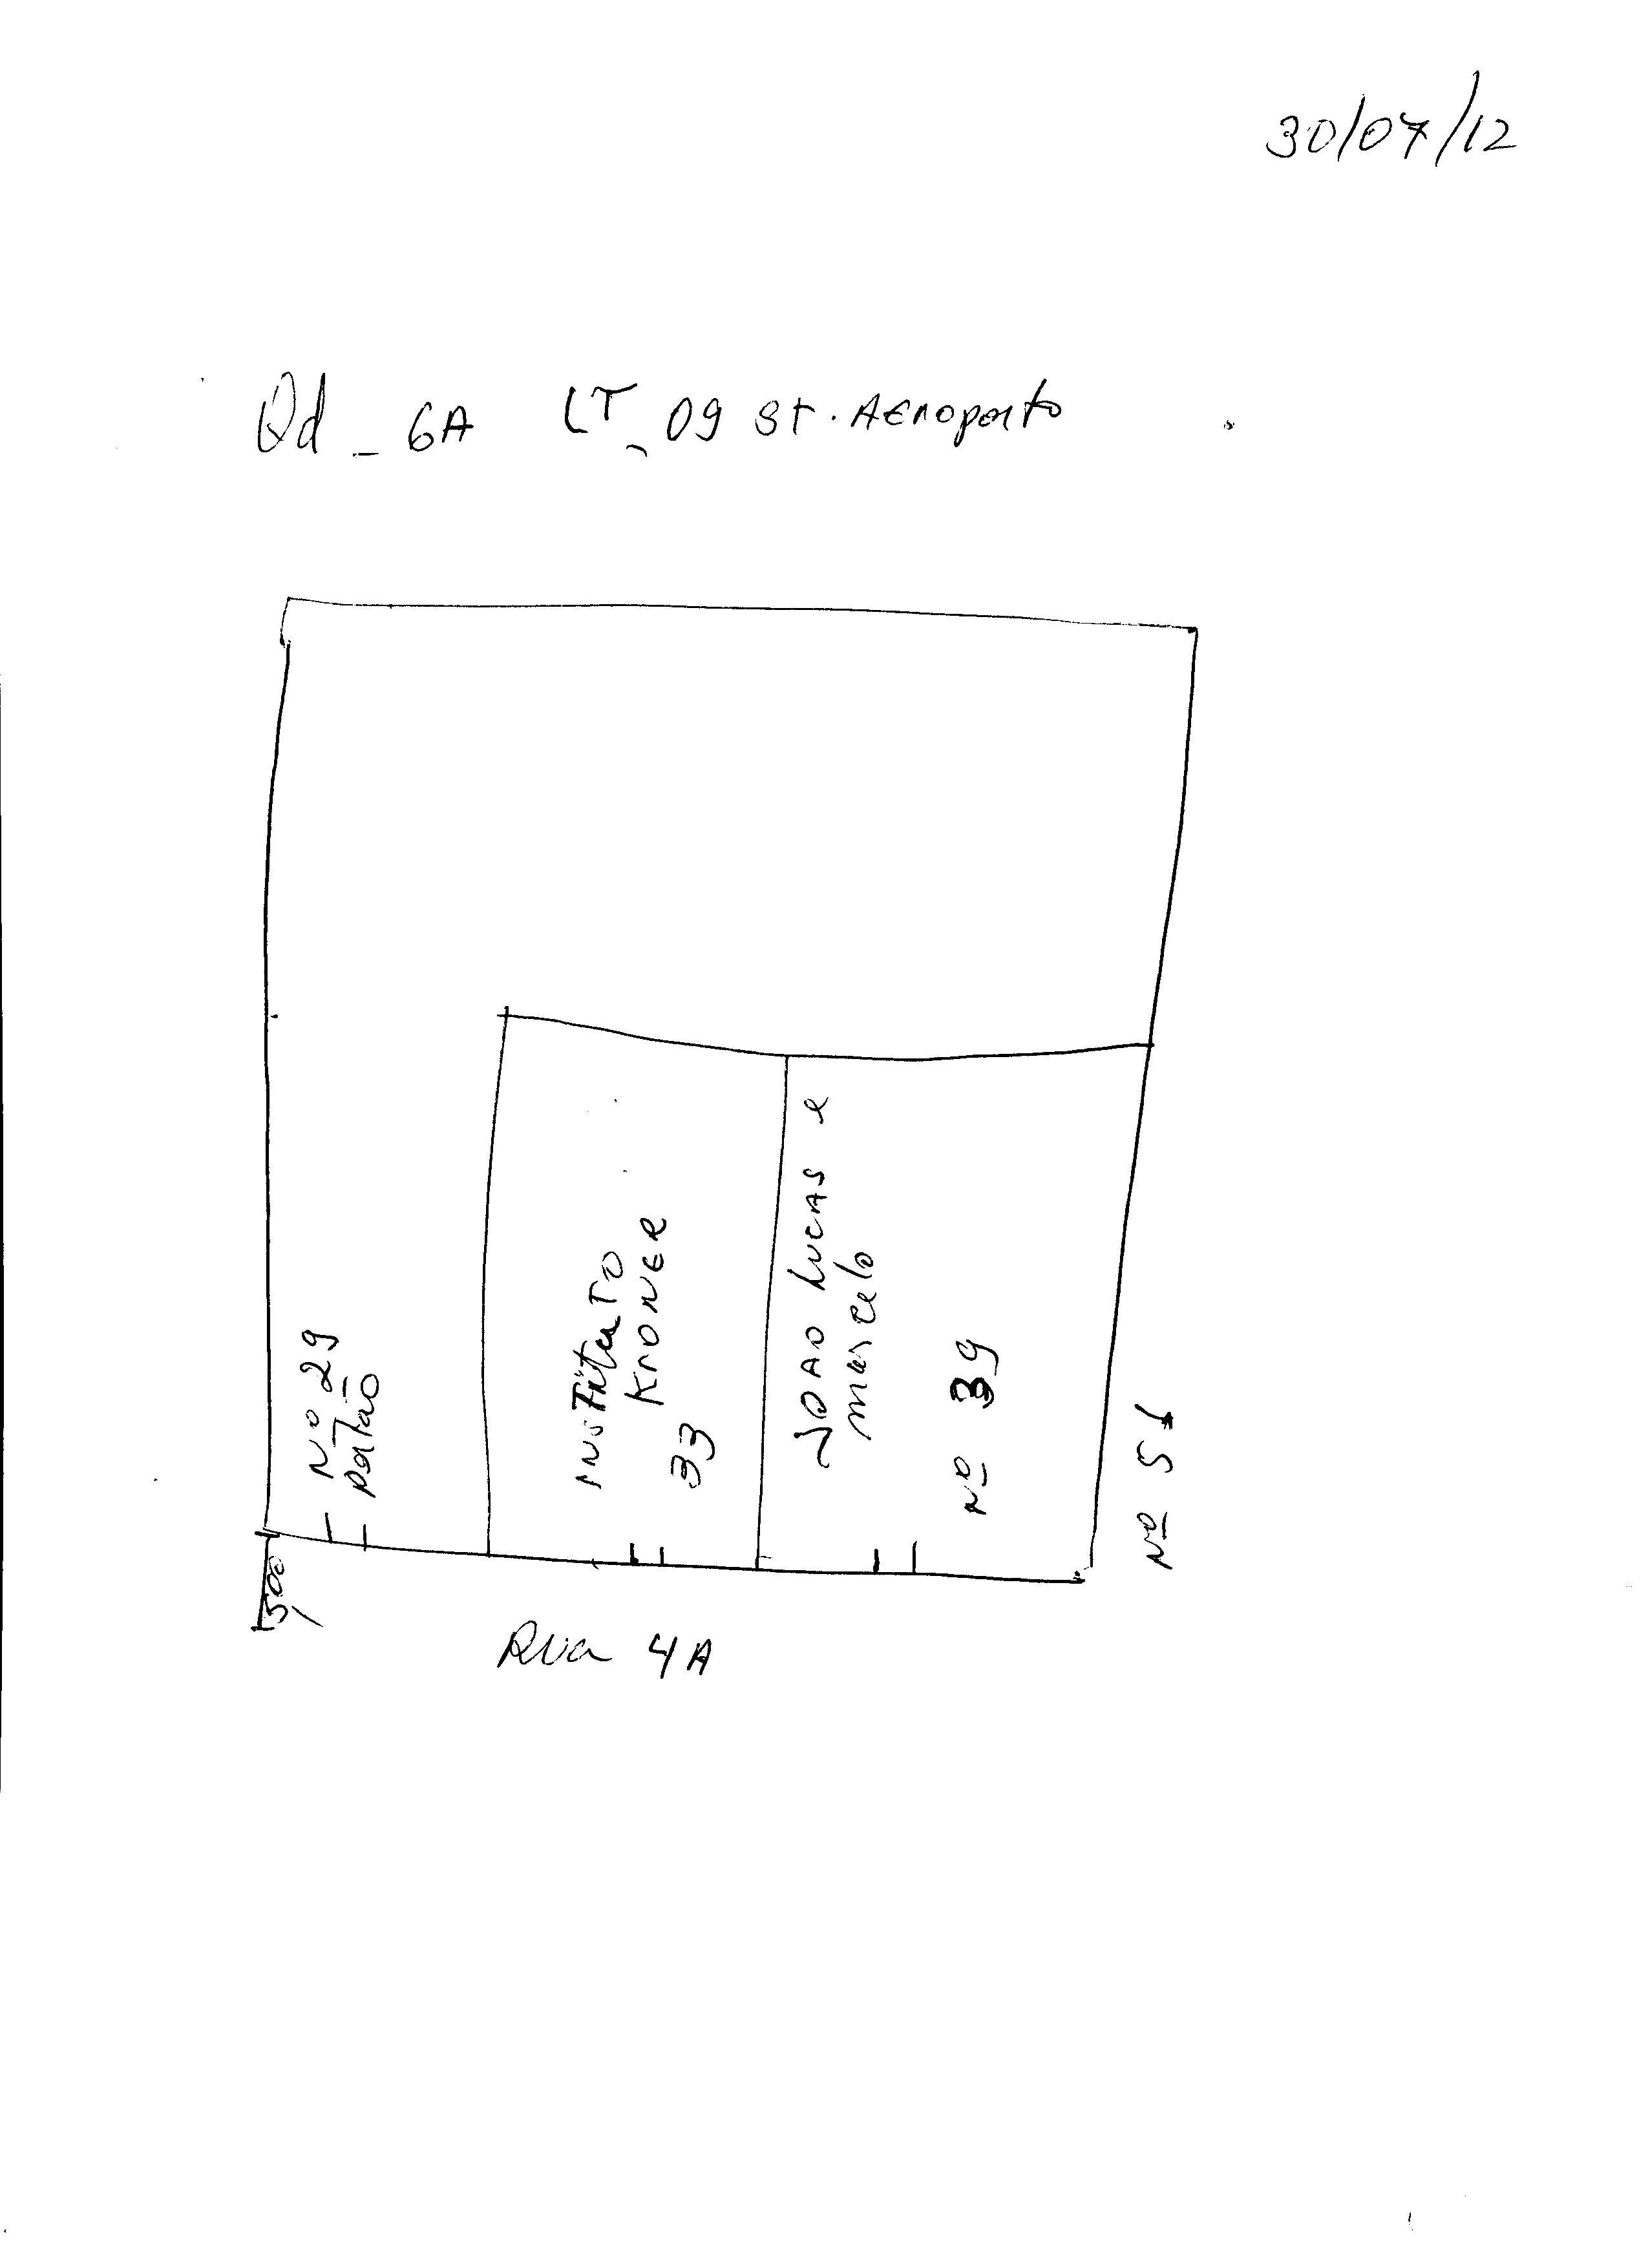 30/07/12
Qd - 6A LT - 09 St. Aeroporto
Nº 29
portão
INSTITUTO
KRONER
33
JOAO LUCAS e
marcelo
Nº 39
Nº 51
500
Rua 4A